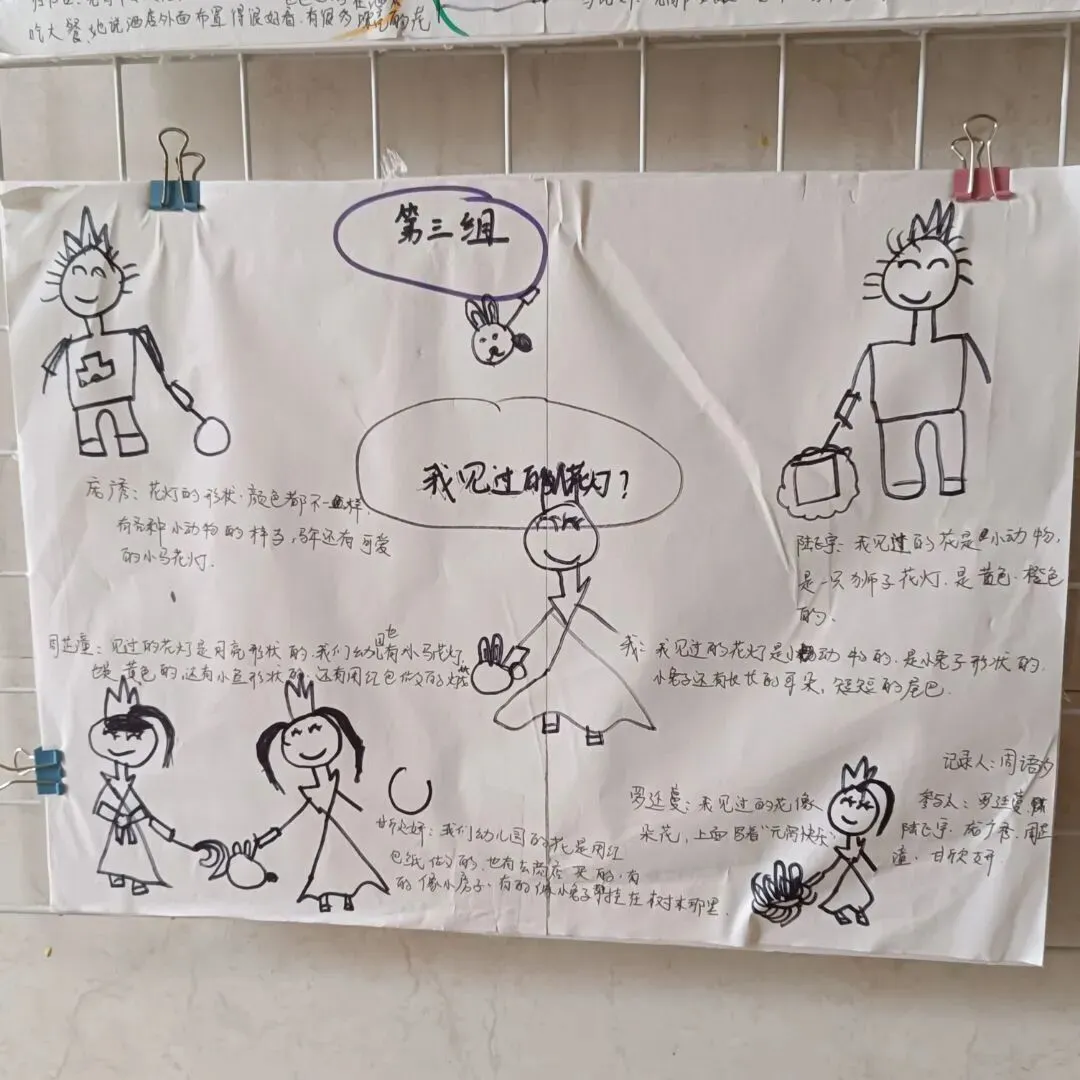 吃大餐,她说酒店外面布置得很好看,有很多
的花
第三组
我见过的花灯?
庞广秀:花灯的形状、颜色都不一样,
有各种小动物的样子,马年还有可爱
的小马花灯.
陆飞宇:我见过的花是小动物,
是一只狮子花灯.是黄色、橙色
的.
周芷潼:见过的花灯是月亮形状的.我们幼儿园也有小马花灯
黄色的,还有小鱼形状的,还有用红包做的
我:我见过的花灯是小动物的.是小兔子形状的.
小兔子还有长长的耳朵,短短的尾巴.
甘欣妍:我们幼儿园的花是用红
包纸做的,也有去商店买的.有
的像小房子、有的像小兔子挂在树木那里.
罗廷蔓:我见过的花像
朵花,上面写着“元宵快乐”
记录人:周语
参与人:罗廷蔓
陆飞宇、庞广秀、周芷
潼、甘欣妍